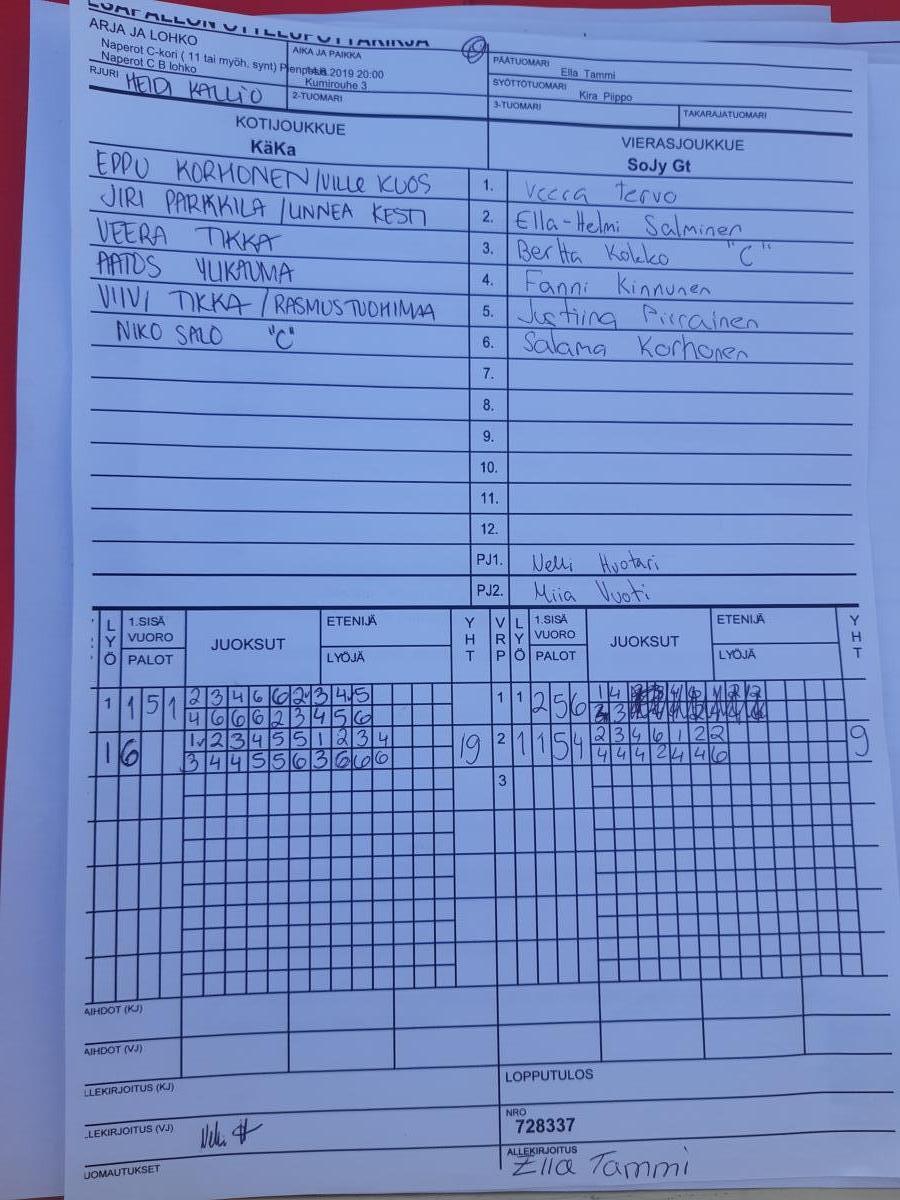 ESÄPALLON OTTELUPÖYTÄKIRJA
ARJA JA LOHKO
Naperot C-kori ( 11 tai myöh. synt) Pienp
Naperot C B lohko
AIKA JA PAIKKA
2019 20:00
Kumirouhe 3
PÄÄTUOMARI
Ella Tammi
SYÖTTÖTUOMARI
Kira Piippo
RJURI HEIDI KALLIO
2-TUOMARI
3-TUOMARI
TAKARAJATUOMARI
KOTIJOUKKUE
KäKa
VIERASJOUKKUE
SoJy Gt
EPPU KORHONEN/VILLE KUOS 1. Veera Tervo
JIRI PARKKILA /LINNEA KESTI 2. Ella-Helmi Salminen
VEERA TIKKA 3. Bertta Kokko "C"
AATOS YLIKAUMA 4. Fanni Kinnunen
VIIVI TIKKA / RASMUS TUOHIMAA 5. Justiina Pirrainen
NIKO SALO "C" 6. Salama Korhonen
7.
8.
9.
10.
11.
12.
PJ1. Nelli Huotari
PJ2. Miia Vuoti
LYÖ 1.SISÄ VUORO PALOT JUOKSUT ETENIJÄ LYÖJÄ YHT VRP LYÖ 1.SISÄ VUORO PALOT JUOKSUT ETENIJÄ LYÖJÄ YHT
1 1 5 1 2 3 4 6 6 2 3 4 5 1 1 2 5 6 1 4
4 6 6 6 2 3 4 5 6 3
1 6 1 2 3 4 5 5 1 2 3 4 19 2 1 1 5 4 2 3 4 6 1 2 2 9
3 4 4 5 5 6 3 6 6 6 4 4 4 2 4 4 6
3
AIHDOT (KJ)
AIHDOT (VJ)
LLEKIRJOITUS (KJ)
LOPPUTULOS
LLEKIRJOITUS (VJ)
NRO
728337
UOMAUTUKSET
ALLEKIRJOITUS
Ella Tammi